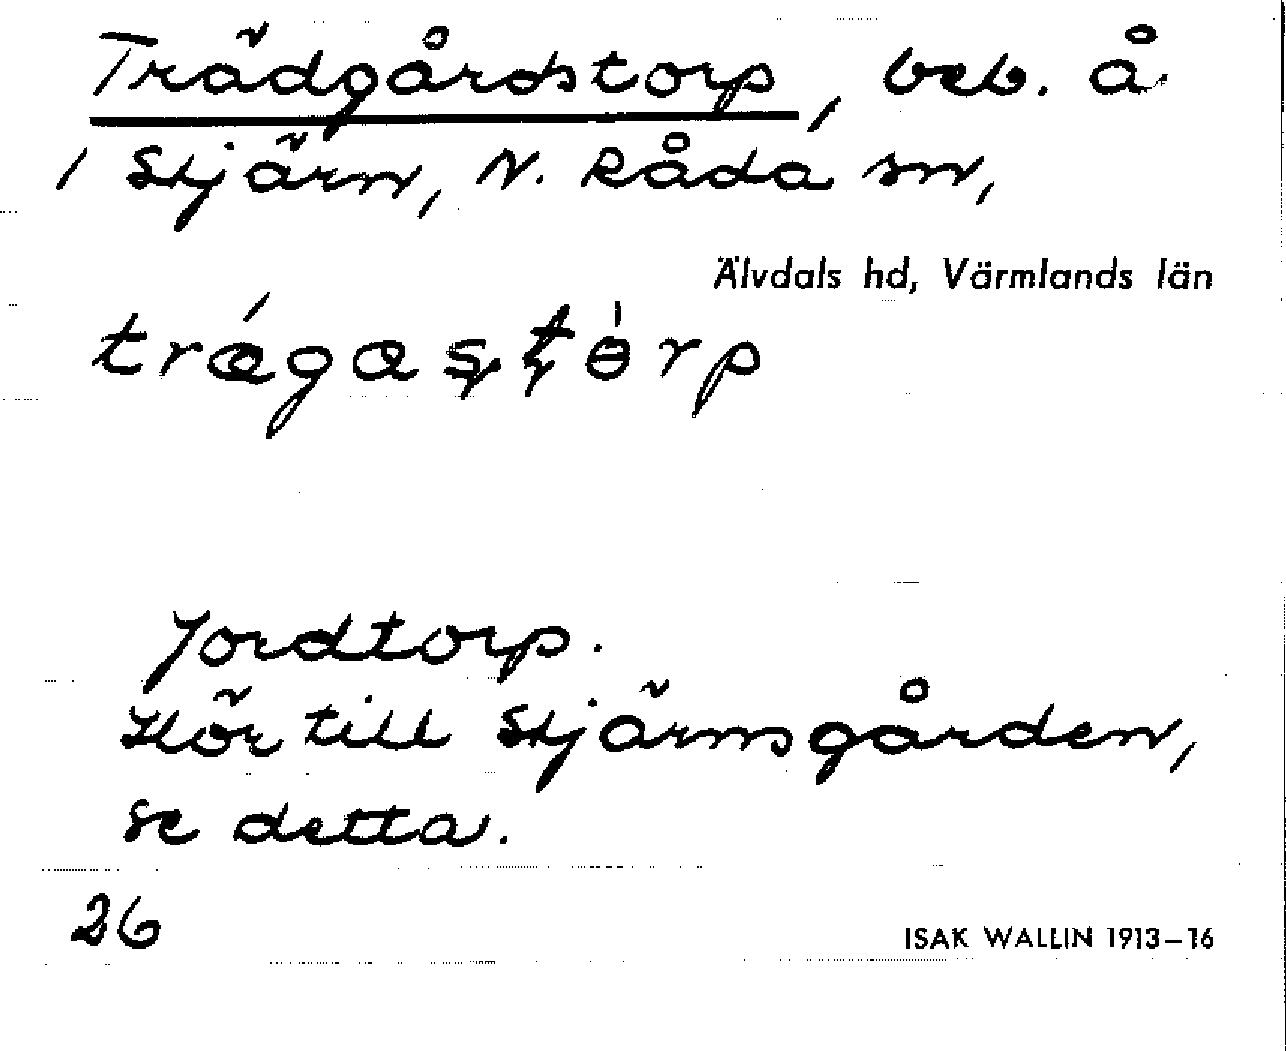 Trädgårdstorp, beb. å
/ Stjärn, N. Råda sn,
Älvdals hd, Värmlands län
trǽgaștɵ̀rp
Jordtorp.
Hör till Stjärnsgården,
se detta.
26
ISAK WALLIN 1913–16